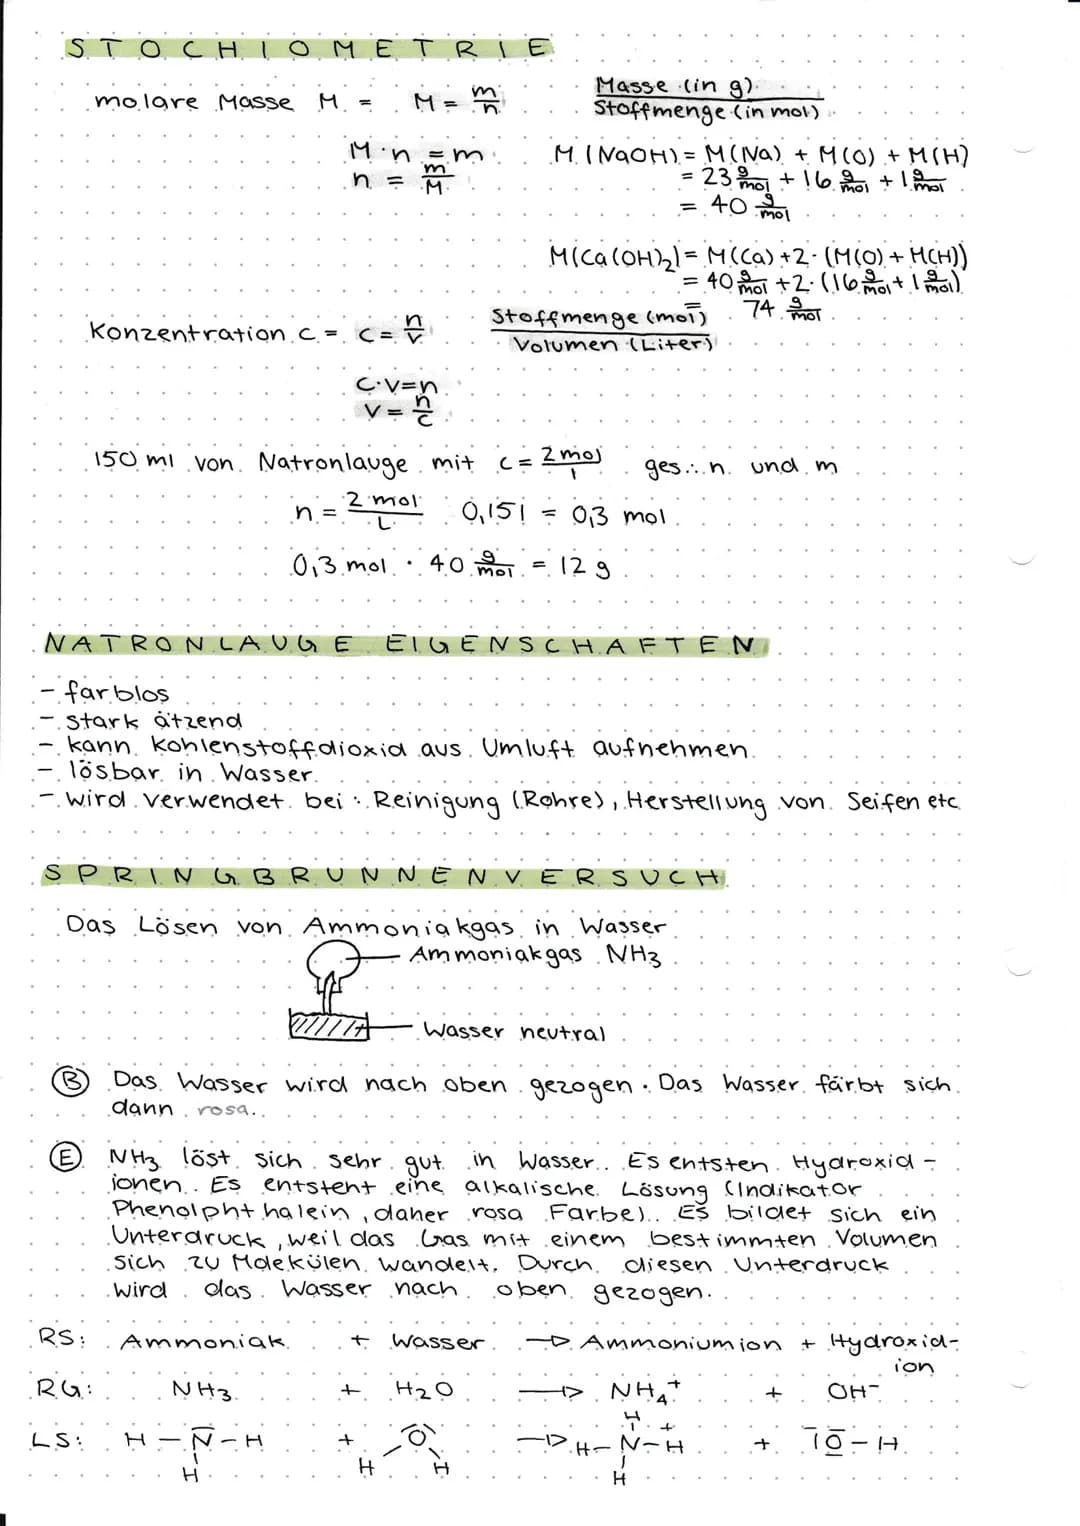 STOCHIOMETRIE
molare Masse M = M = m/n Masse (in g) / Stoffmenge (in mol)
M · n = m
n = m/M
M (NaOH) = M(Na) + M(O) + M(H)
= 23 g/mol + 16 g/mol + 1 g/mol
= 40 g/mol
M(Ca(OH)₂) = M(Ca) + 2 · (M(O) + M(H))
= 40 g/mol + 2 · (16 g/mol + 1 g/mol)
= 74 g/mol
Konzentration c = c = n/v Stoffmenge (mol) / Volumen (Liter)
C · V = n
V = n/c
150 ml von Natronlauge mit c = 2 mol/l ges.: n und m
n = 2 mol/L 0,15l = 0,3 mol
0,3 mol · 40 g/mol = 12 g
NATRONLAUGE EIGENSCHAFTEN
- farblos
- stark ätzend
- kann Kohlenstoffdioxid aus Umluft aufnehmen
- lösbar in Wasser
- wird verwendet bei : Reinigung (Rohre), Herstellung von Seifen etc
SPRINGBRUNNENVERSUCH
Das Lösen von Ammoniakgas in Wasser
Ammoniakgas NH3
Wasser neutral
(B) Das Wasser wird nach oben gezogen. Das Wasser färbt sich
dann rosa.
(E) NH3 löst sich sehr gut in Wasser. Es entsten Hydroxid-
ionen. Es entsteht eine alkalische Lösung (Indikator
Phenolphthalein, daher rosa Farbe). Es bildet sich ein
Unterdruck, weil das Gas mit einem bestimmten Volumen
sich zu Molekülen wandelt. Durch diesen Unterdruck
wird das Wasser nach oben gezogen.
RS: Ammoniak + Wasser → Ammoniumion + Hydroxid-
ion
RG: NH3 + H2O → NH4⁺ + OH⁻
H
LS: H – N – H + O → H – N – H + + IO – H
H H H H